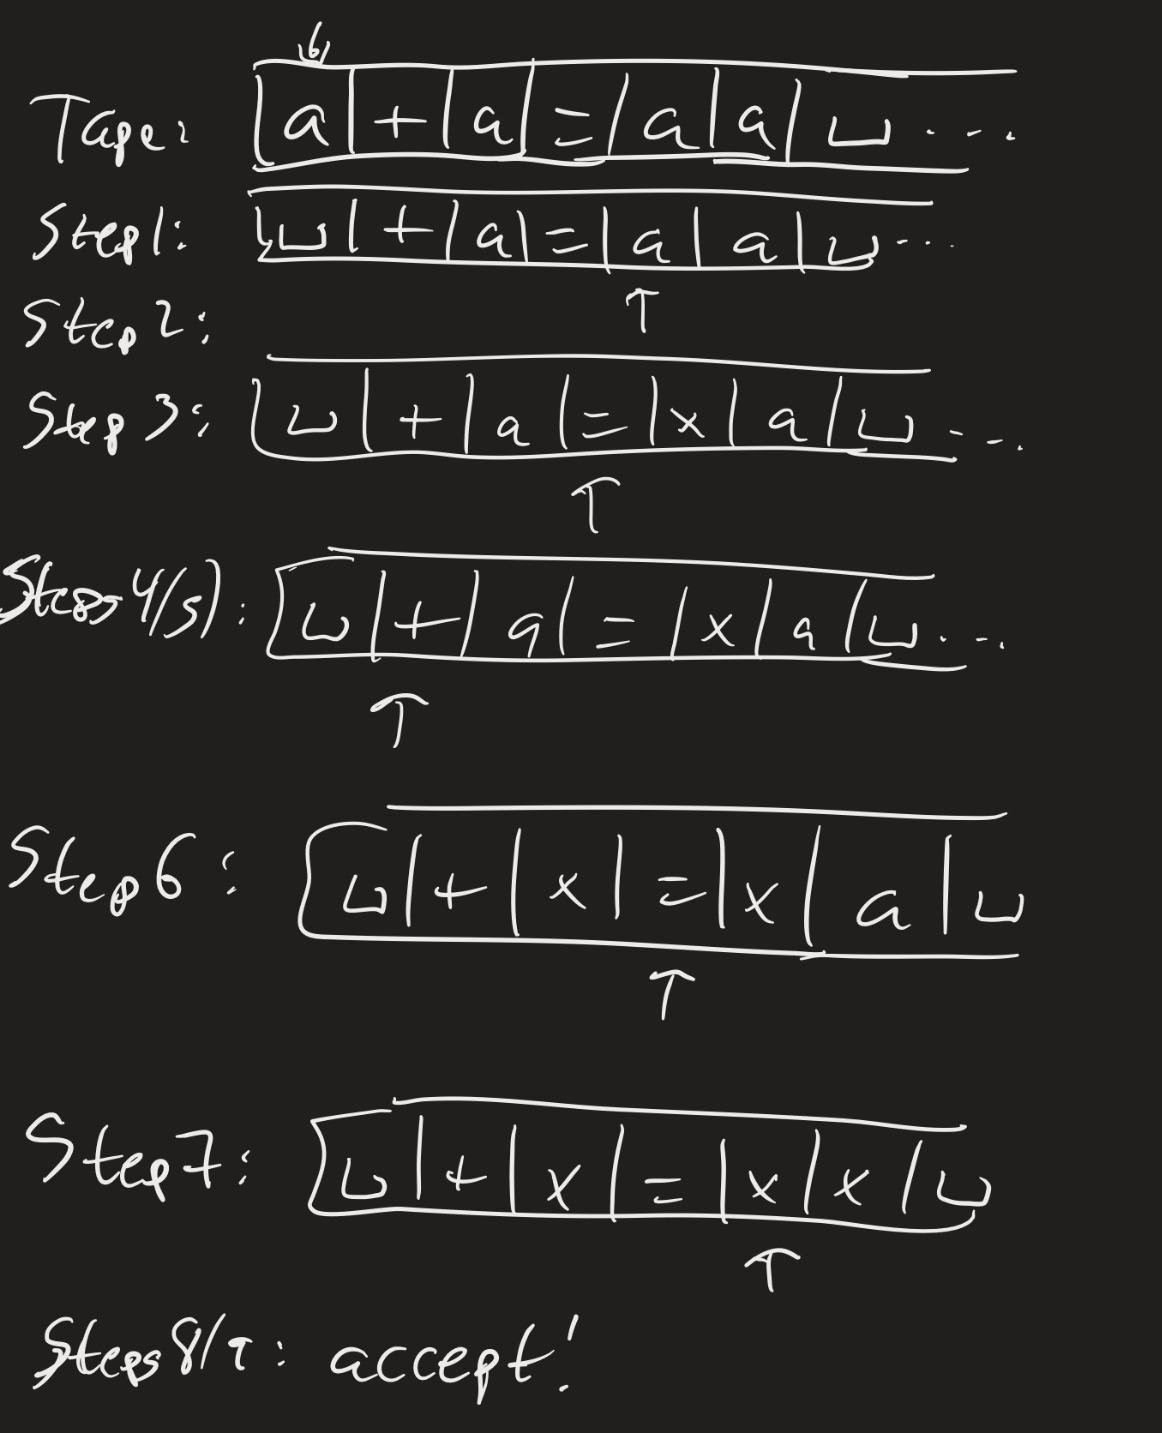 ↓
Tape: |a|+|a|=|a|a|␣ ...
Step 1: |␣|+|a|=|a|a|␣ ...
↑
Step 2:
Step 3: |␣|+|a|=|x|a|␣ ...
↑
Steps 4/5): |␣|+|a|=|x|a|␣ ...
↑
Step 6: |␣|+|x|=|x|a|␣
↑
Step 7: |␣|+|x|=|x|x|␣
↑
Steps 8/9: accept!